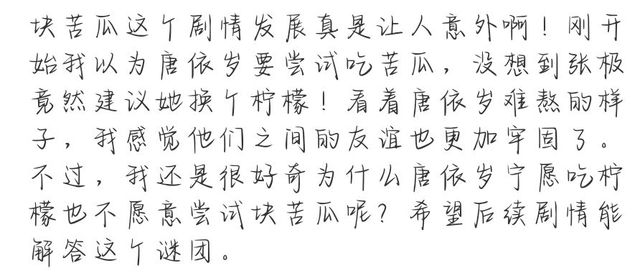 块苦瓜这个剧情发展真是让人意外啊！刚开
始我以为唐依岁要尝试吃苦瓜，没想到张极
竟然建议她换个柠檬！看着唐依岁难熬的样
子，我感觉他们之间的友谊也更加牢固了。
不过，我还是很好奇为什么唐依岁宁愿吃柠
檬也不愿意尝试块苦瓜呢？希望后续剧情能
解答这个谜团。